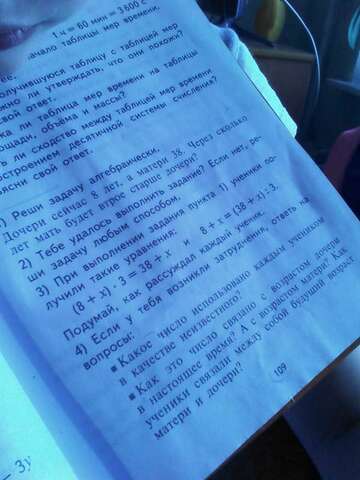 1 ч = 60 мин = 3600 с
начало таблицы мер времени,
получившуюся таблицу с таблицей мер
можно ли утверждать, что они похожи?
свой ответ.
ка ли таблица мер времени на таблицы
площади, объёма и массы?
ть ли сходство между таблицей мер времени
построением десятичной системы счисления?
ясни свой ответ.
1) Реши задачу алгебраически.
Дочери сейчас 8 лет, а матери 38. Через сколько
лет мать будет втрое старше дочери?
2) Тебе удалось выполнить задание? Если нет, ре-
ши задачу любым способом.
3) При выполнении задания пункта 1) ученики по-
лучили такие уравнения:
(8 + x) · 3 = 38 + x и 8 + x = (38 + x) : 3.
Подумай, как рассуждал каждый ученик.
4) Если у тебя возникли затруднения, ответь на
вопросы:
■ Какое число использовано каждым учеником
в качестве неизвестного?
■ Как это число связано с возрастом дочери
в настоящее время? А с возрастом матери? Как
ученики связали между собой будущий возраст
матери и дочери?
109
– 3у